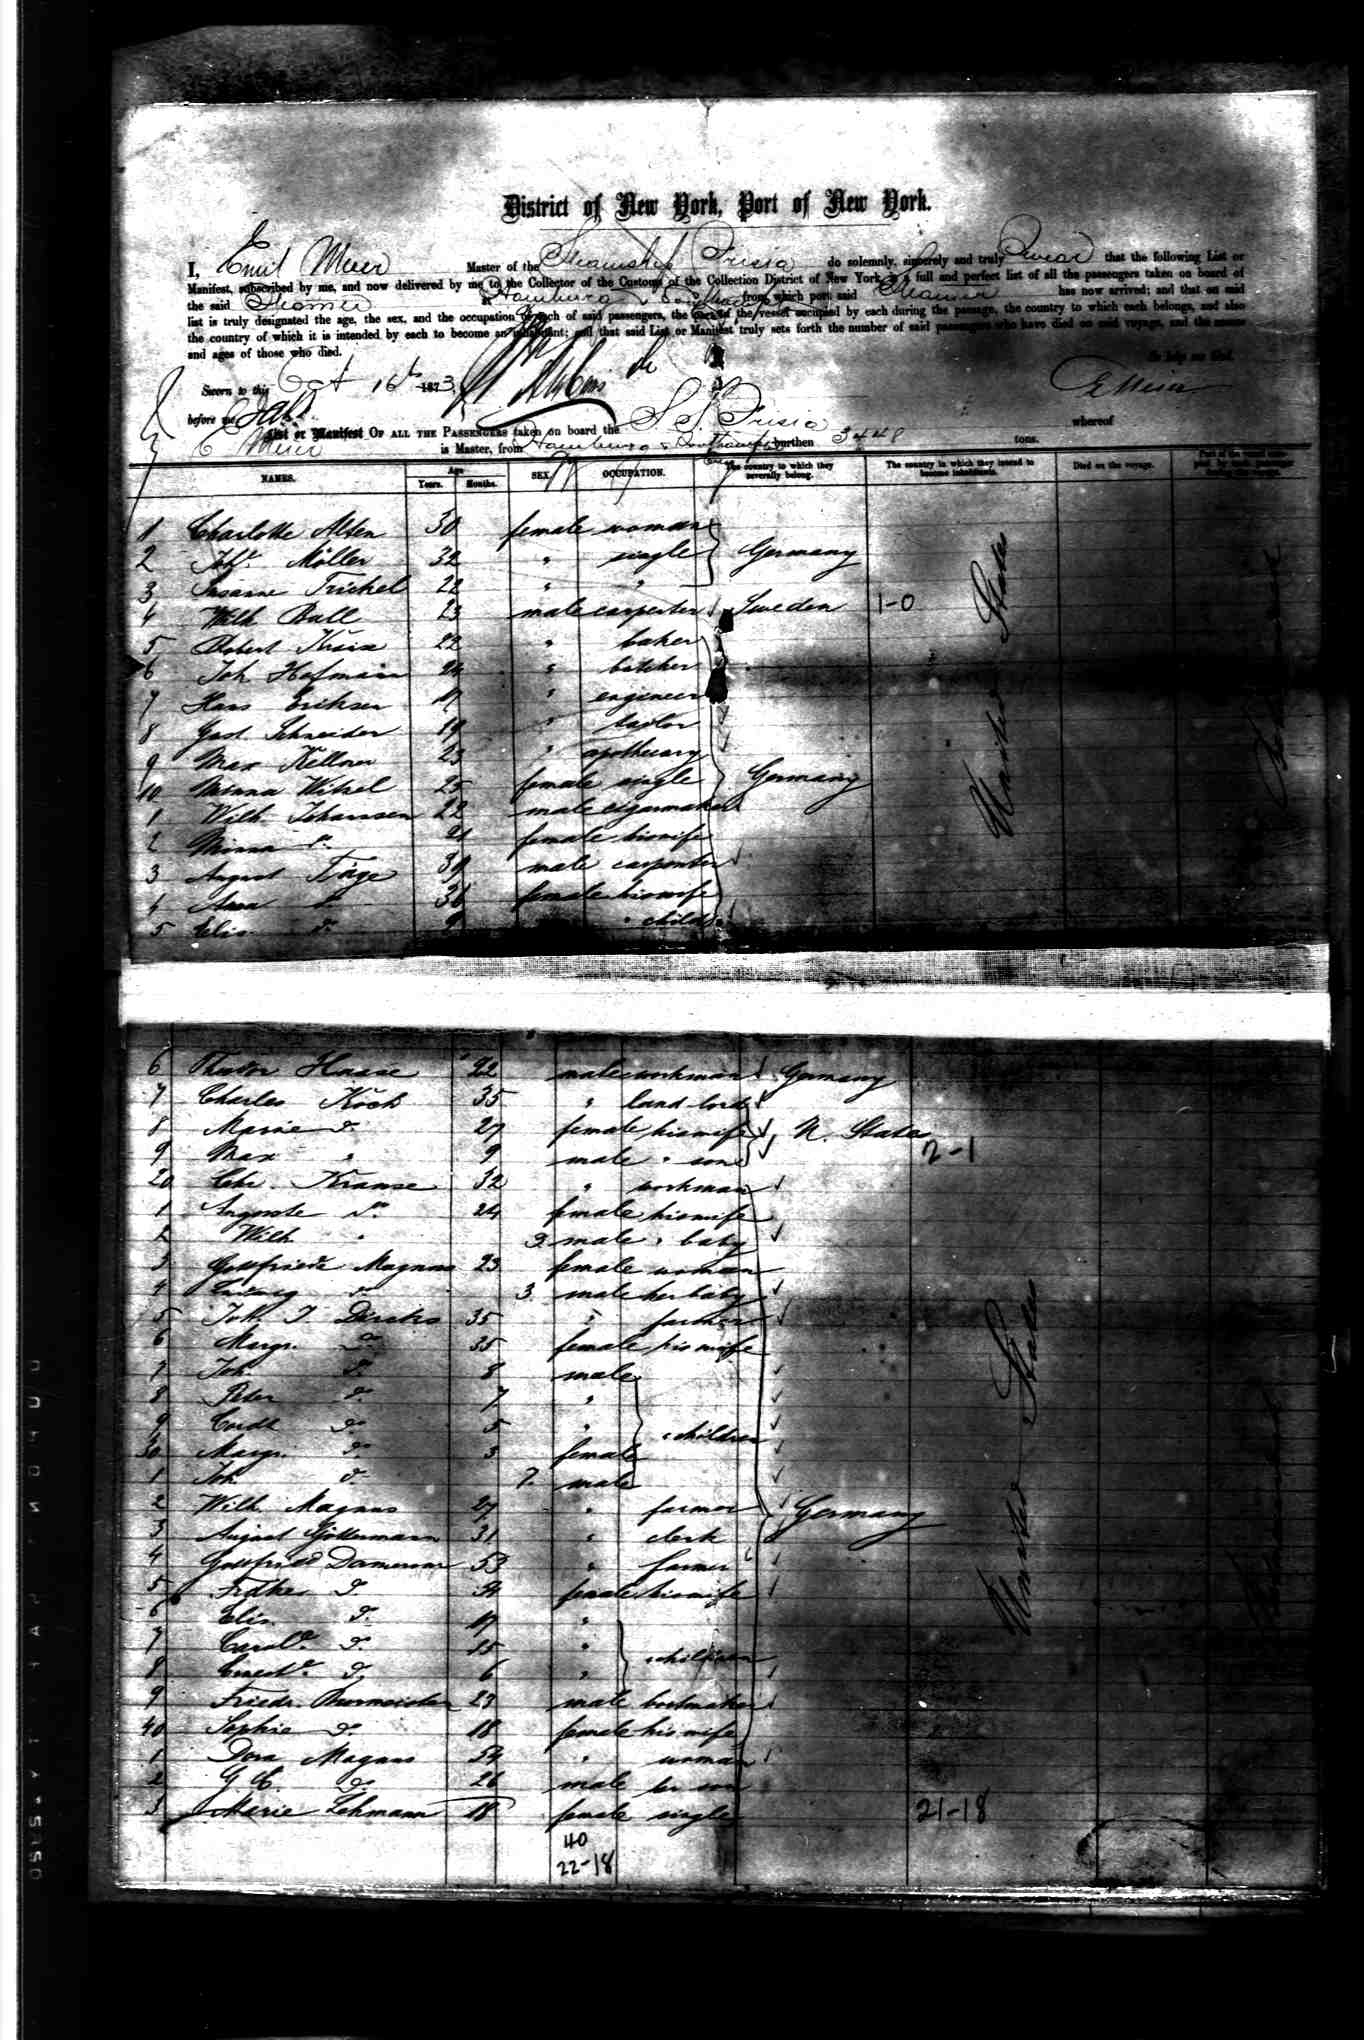 District of New York, Port of New York.
I, Emil Meier Master of the Steamship Frisia do solemnly, sincerely and truly swear that the following List or
Manifest, subscribed by me, and now delivered by me to the Collector of the Customs of the Collection District of New York, is a full and perfect list of all the passengers taken on board of
the said Steamer at Hamburg & Southampton from which port said Steamer has now arrived; and that on said
list is truly designated the age, the sex, and the occupation of each of said passengers, the part of the vessel occupied by each during the passage, the country to which each belongs, and also
the country of which it is intended by each to become an inhabitant; and that said List or Manifest truly sets forth the number of said passengers who have died on said voyage, and the names
and ages of those who died. So help me God.
Sworn to this Oct 16th 1873 E Meier
before me
List or Manifest OF ALL THE PASSENGERS taken on board the S. S. Frisia whereof
E Meier is Master, from Hamburg & Southampton burthen 3448 tons.
NAMES. Age Years. Months. SEX. OCCUPATION. The country to which they severally belong. The country in which they intend to become inhabitants. Died on the voyage.
1 Charlotte Alten 30 female woman
2 Möller 32 " single Germany
3 Susanne Trickel 22 " "
4 Wilh Ball 23 male carpenter Sweden 1-0
5 Robert 22 " baker
6 Joh. Hofmann 24 " butcher
7 Hans Eriksen 19 " engineer
8 Gust Schneider 19 " tailor
9 Max Kellner 23 " apothecary
10 Minna Witzel 25 female single Germany
1 Wilh Johannsen 22 male cigarmaker
2 Minna do 21 female his wife
3 August 39 male carpenter
4 do 36 female his wife
5 Elis. do 9 " child
United States
6 Theodor Haase 22 male workman Germany
7 Charles Koch 35 " landlord
8 Marie do 27 female his wife U. States
9 Max " 9 male " son 2-1
20 Chr. Krause 32 " workman
1 Auguste do 24 female his wife
2 Wilh " 3 male " baby
3 Gottfriede Magnus 23 female woman
4 Ludwig do 3 male her baby
5 Joh. J. Dircks 35 " farmer
6 Margr. do 35 female his wife
7 Joh. do 8 male
8 Peter do 7 "
9 Cordt do 5 " children
30 Margr. do 3 female
1 Joh. do 7 male
2 Wilh. Magnus 27 " farmer Germany
3 August Göttermann 31 " clerk
4 Gottfried Damerow 53 " farmer
5 do 54 female his wife
6 Elis. do 17 "
7 Carole do 15 " children
8 do 6 "
9 Friedr. Burmeister 23 male bootmaker
40 Sophie do 18 female his wife
1 Dora Magnus 54 " woman
2 G. C. do 26 male her son
3 Marie Lehmann 18 female single 21-18
United States
40
22-18